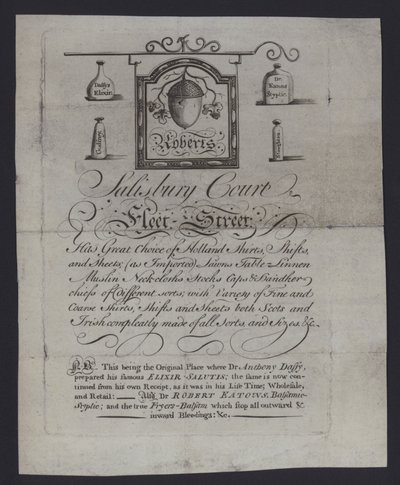 Daffey's
Elixir
Dr.
Eatons
Styptic
Godfreys
Stoughtons
Roberts.
Salisbury Court
Fleet-Street
Has Great Choice of Holland Shirts, Shifts,
and Sheets, (as Imported) Lawns Table-Linnen
Muslin Neck-cloths Stocks Caps & Handker-
chiefs of Different sorts; with Variety of Fine and
Coarse Shirts, Shifts and Sheets both Scots and
Irish compleatly made of all Sorts and Sizes, &c.
NB. This being the Original Place where Dr. Anthony Daffy,
prepared his famous ELIXIR-SALUTIS; the same is now con-
tinued from his own Receipt, as it was in his Life Time; Wholesale,
and Retail: Also Dr ROBERT EATONS, Balsamic-
Styptic; and the true Fryers-Balsam which stop all outward &
inward Bleedings: &c.